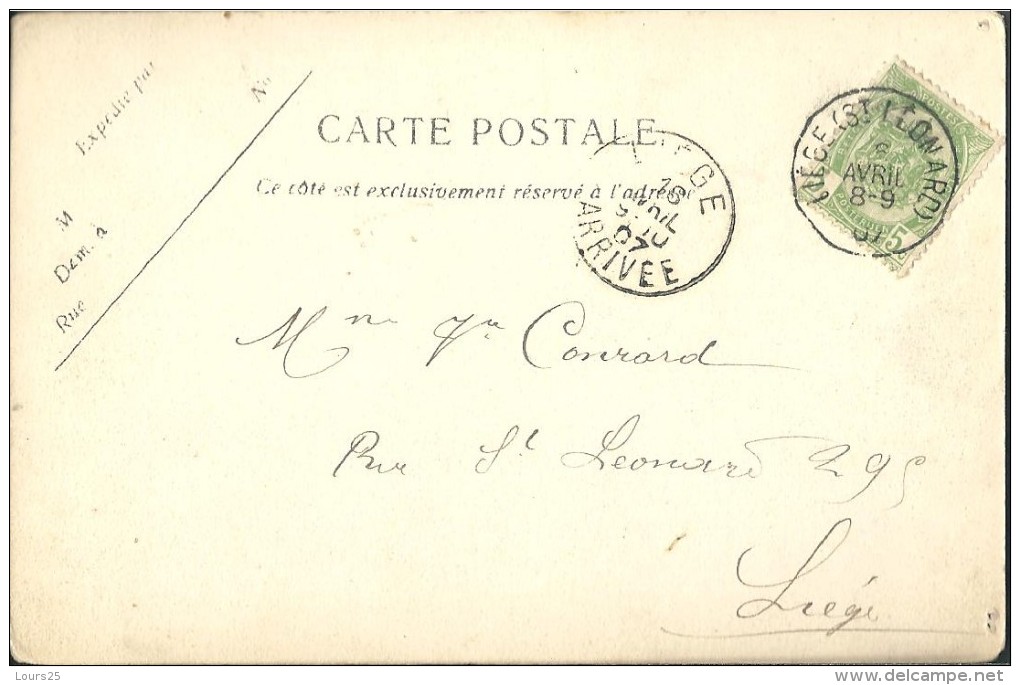 Expédié par
M
Dem. à
Rue
No
CARTE POSTALE
Ce côté est exclusivement réservé à l'adresse
LIÉGE (ST LÉONARD)
6
AVRIL
8-9
07
POSTES
5
16
AVRIL
07
ARRIVÉE
Conrard
Rue St Leonard 295
Liége
Lours25
delcampe.net